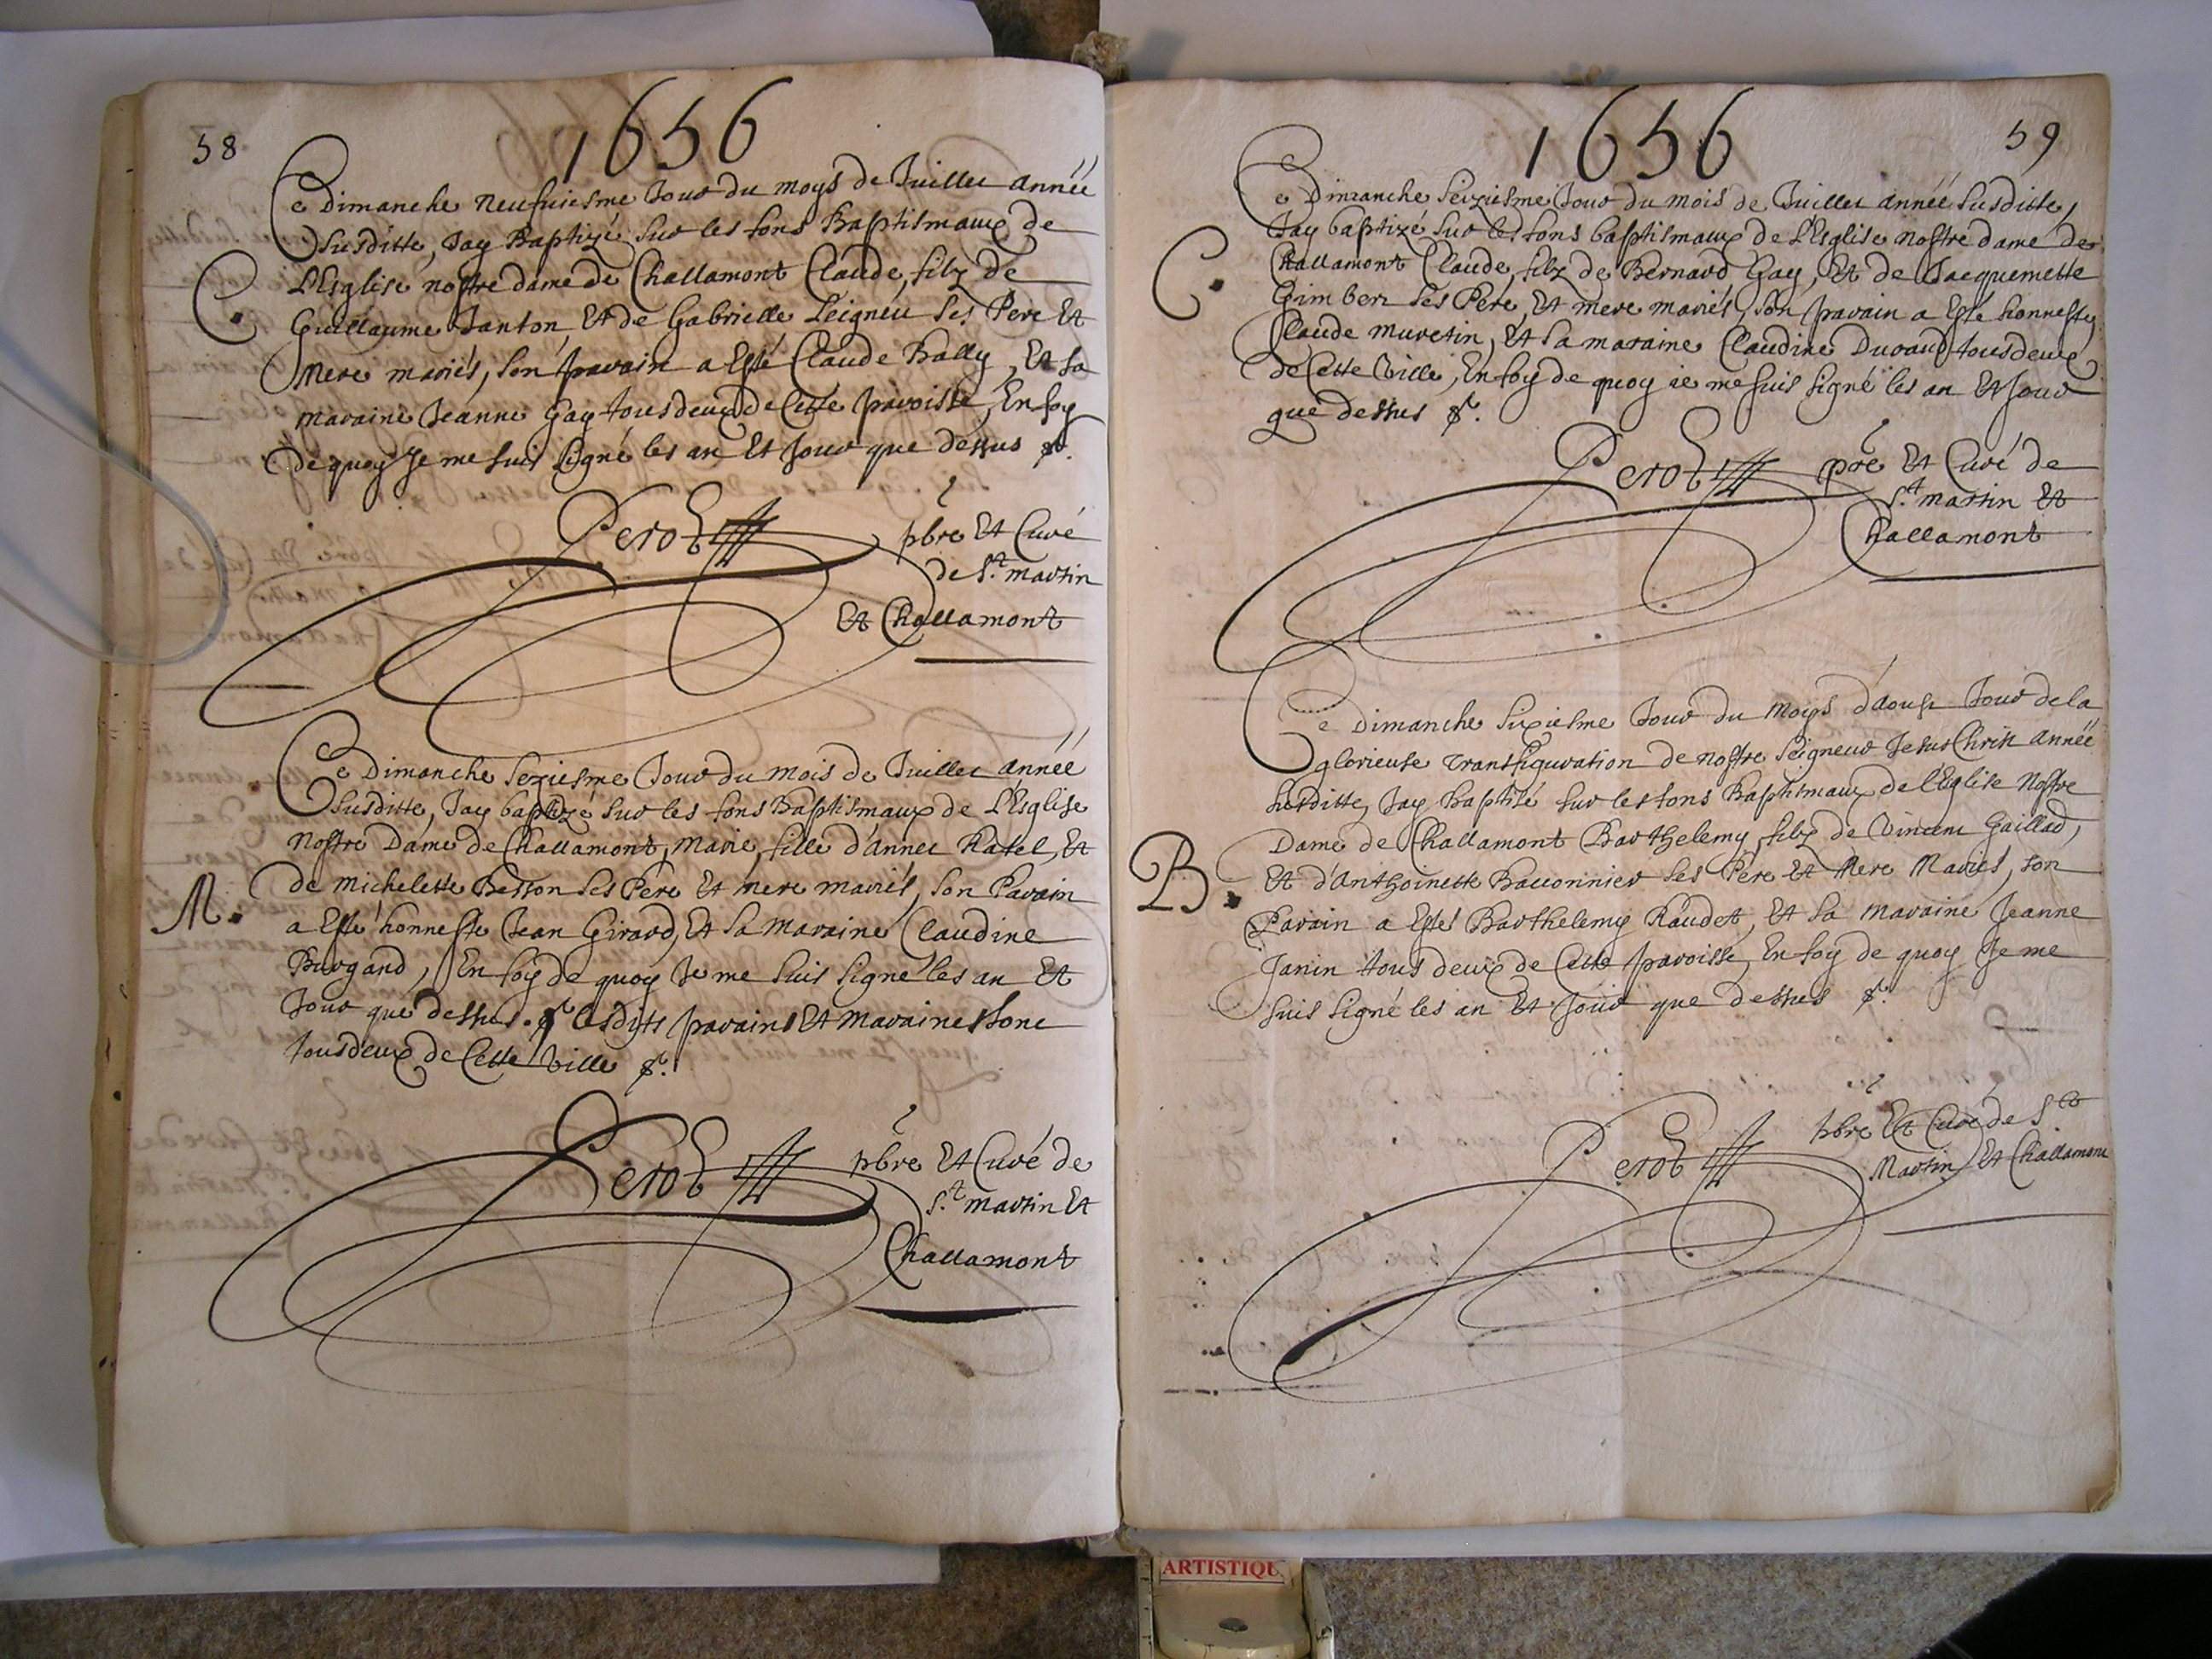 58
1656
Ce Dimanche neufuiesme Jour du moys de Juillet année
susditte, Jay Baptizé sur les fons Baptismaux de
L'Esglise nostre dame de Challamont Claude, filz de
C.
Guillaume Janton, Et de Gabrielle Seigneu ses Pere Et
Mere mariés, son parain a Esté Claude Bally, Et sa
maraine Jeanne Gay tous deux de Cette paroisse, En foy
de quoy Je me suis signé les an Et Jour que dessus &.
Perot
pbre Et Curé
de St. martin
Et Challamont
Ce Dimanche seziesme Jour du mois de Juillet année
susditte, Jay baptizé sur les fons Baptismaux de L'Esglise
Nostre Dame de Challamont, Marie, fille d'Annet Ratel, Et
M.
de Michelette Besson ses Père Et mere mariés, son Parain
a Esté honneste Jean Girard, Et sa Maraine Claudine
Burgand, En foy de quoy Je me suis signé les an Et
Jour que dessus. & lesdits parains Et Maraines sont
tous deux de Cette Ville &.
Perot
pbre Et Curé de
St. martin Et
Challamont
1656
59
Ce Dimanche seiziesme Jour du mois de Juillet année susditte,
Jay baptizé sur les fons baptismaux de L'Esglise nostre dame de
C.
Challamont Claude, filz de Bernard Gay, Et de Jacquemette
Gimbert ses Pere, Et mere mariés, son parain a Esté honneste
Claude muretin, Et sa maraine Claudine Durand tous deux
de Cette Ville, En foy de quoy ie me suis signé les an Et Jour
que dessus &.
Perot
pbre Et Curé de
St. martin Et
Challamont
Ce Dimanche sixiesme Jour du Moys d'Aoust Jour de la
glorieuse transfiguration de nostre seigneur Jesus Christ année
susditte, Jay baptisé sur les fons Baptismaux de l'Eglise Nostre
Dame de Challamont Barthelemy, filz de Vincent Gaillad,
B.
Et d'Anthoinette Bauonnier ses Pere Et Mere Mariés, son
Parain a Estés Barthelemy Raudet, Et sa Maraine Jeanne
Janin tous deux de Cette paroisse, En foy de quoy Je me
suis signé les an Et Jour que dessus &.
Perot
pbre Et Curé de St
Martin Et Challamont
ARTISTIQU